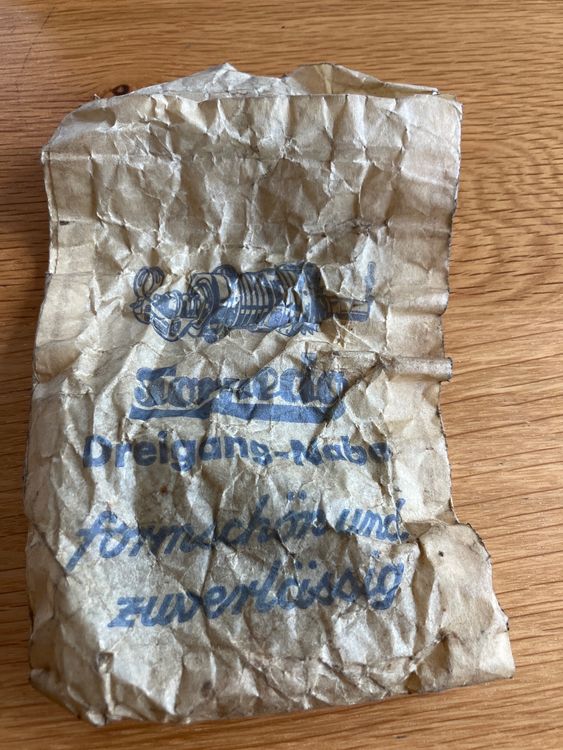 Dreigang-Nabe
formschön und
zuverlässig